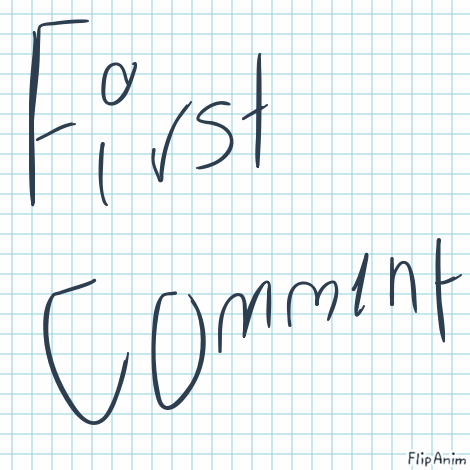 First
Comment
FlipAnim